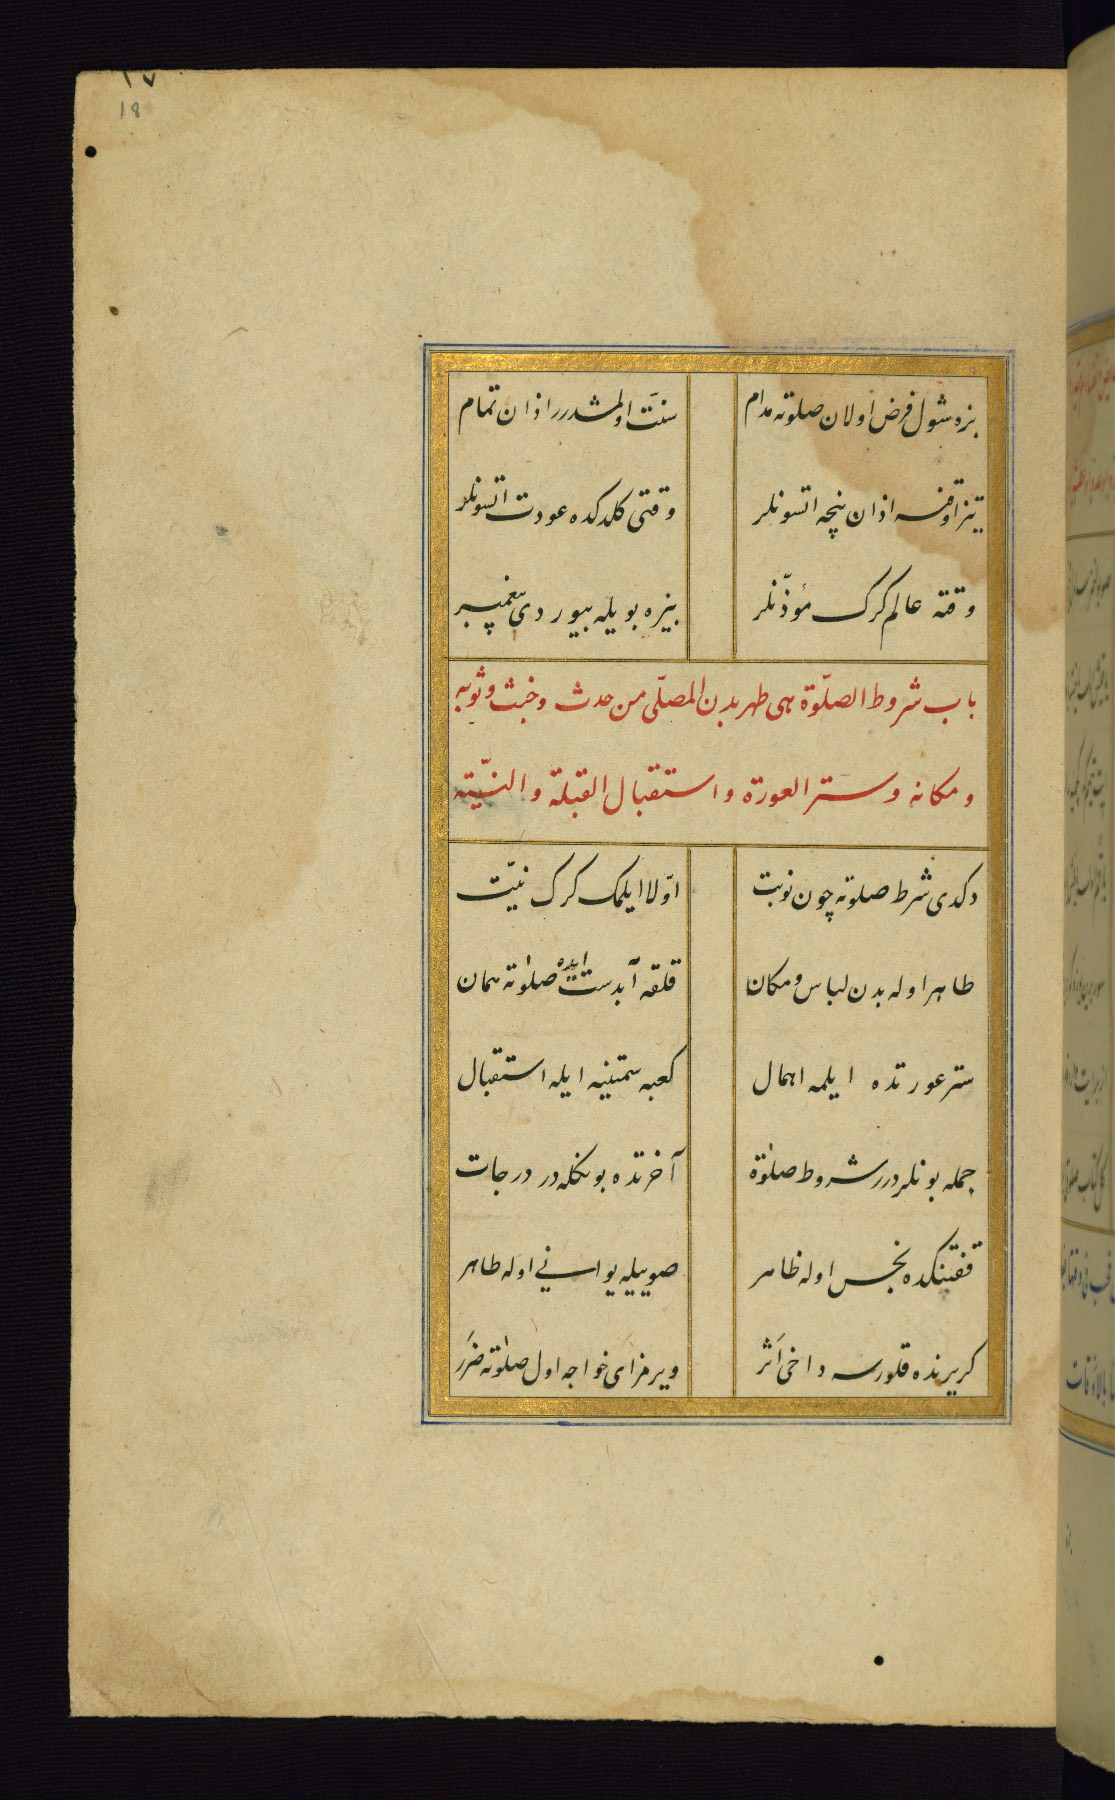 ١٧
18
بزه شول فرض اولان صلوته مدام سنّت اولمشدرر اذان تمام
تیز اوقنسه اذان نیچه اتسونلر وقتی کلدکده عودت اتسونلر
وقته عالم کرک مؤذّنلر بیزه بویله بیوردی پیغمبر
باب شروط الصلوة هی طهر بدن المصلّی من حدث وخبث وثوبه
ومکانه وستر العورة واستقبال القبلة والنیّته
دکدی شرط صلوته چون نوبت اوّلا ایلمک کرک نیّت
طاهر اوله بدن لباس ومکان قلقه آبدست ایده صلوته همان
ستر عورتده ایلمه اهمال کعبه سمتینیه ایله استقبال
جمله بونلردرر شروط صلوة آخرتده بونکله در درجات
قفتینکده نجس اوله ظاهر صوییله یو انی اوله طاهر
کریرنده قلورسه داخی اثر ویرمز ای خواجه اول صلوته ضرر